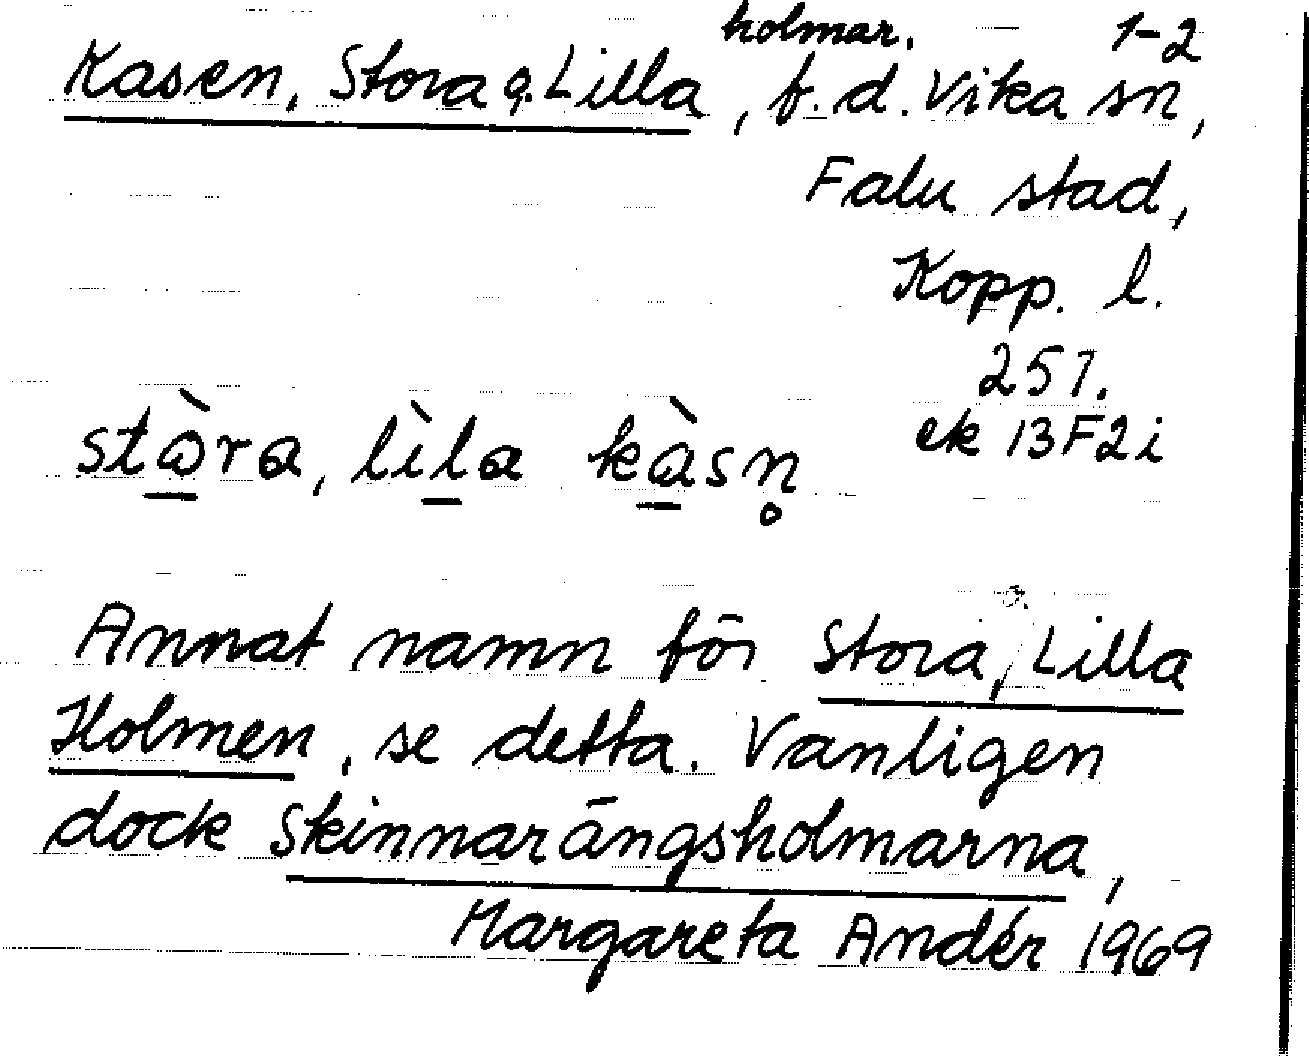 holmar. 1-2
Kasen, Stora o. Lilla, f.d. Vika sn,
Falu stad,
Kopp. l.
257.
stɷ̀ra, lìla kàsn̥
ek 13F2i
Annat namn för Stora, Lilla
Holmen, se detta. Vanligen
dock Skinnarängsholmarna,
Margareta Andér 1969